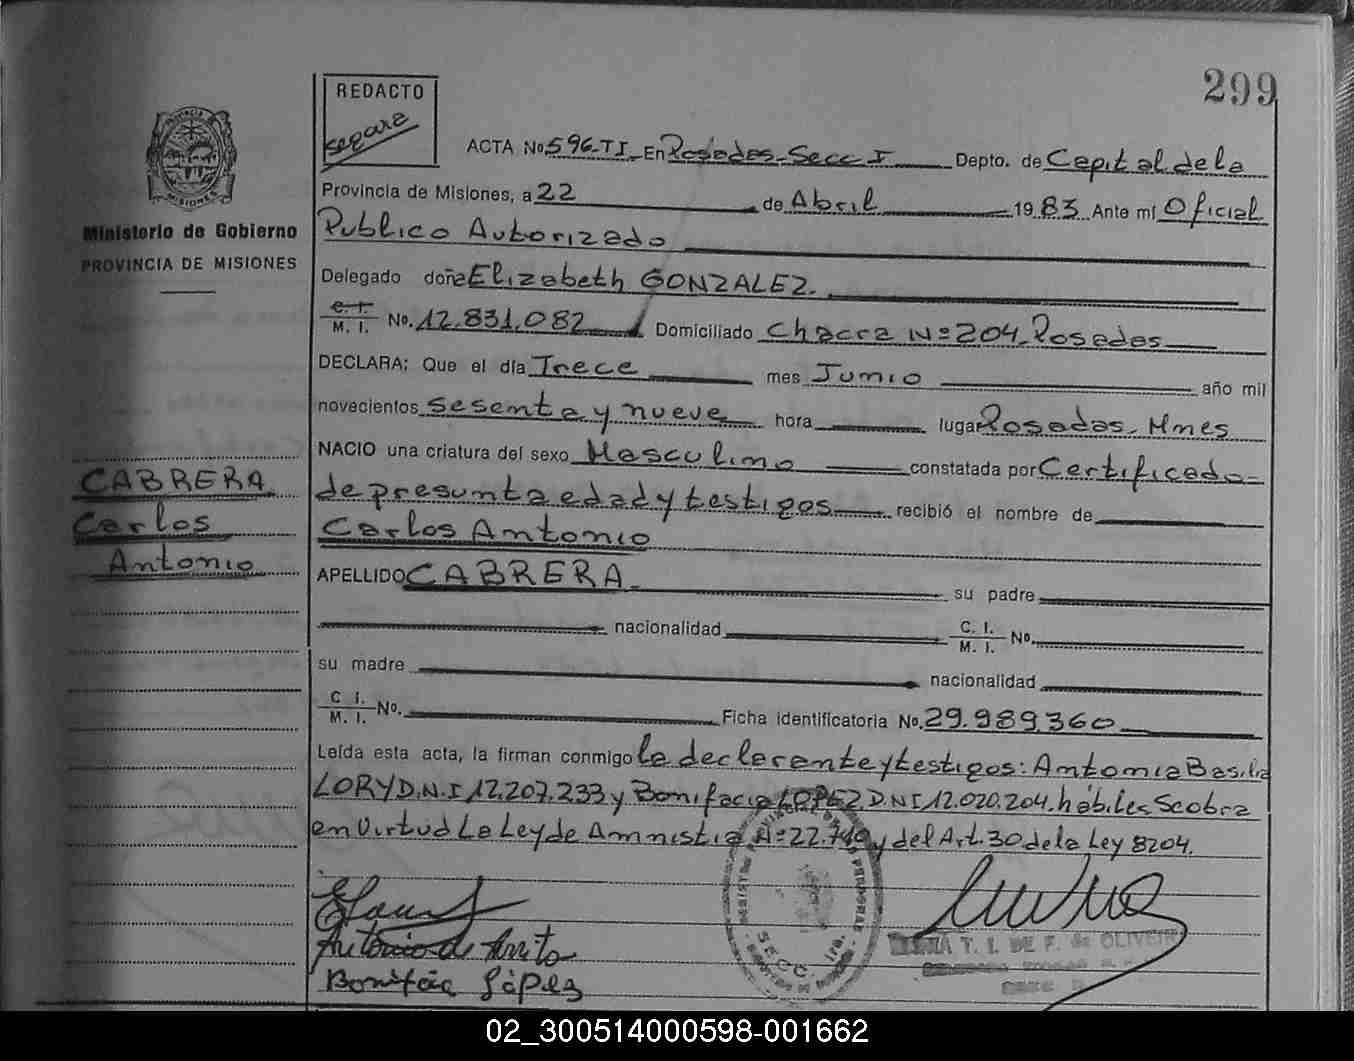 299
REDACTO
PROVINCIA
MISIONES
Ministerio de Gobierno
PROVINCIA DE MISIONES
ACTA No 596-TI En Posadas-Secc I Depto. de Capital de la
Provincia de Misiones, a 22 de Abril 1983 Ante mí Oficial
Publico Autorizado
Delegado doña Elizabeth GONZALEZ.
C. I.
M. I. No. 12.831.082 Domiciliado Chacra Nº 204 Posadas
DECLARA: Que el día Trece mes Junio año mil
novecientos sesenta y nueve hora lugar Posadas-Mnes
NACIO una criatura del sexo Masculino constatada por Certificado
de presunta edad y testigos recibió el nombre de
Carlos Antonio
APELLIDO CABRERA su padre
nacionalidad C. I. M. I. No.
su madre nacionalidad
C. I.
M. I. No. Ficha identificatoria No. 29.989.360
Leída esta acta, la firman conmigo la declarante y testigos: Antonia Basilia
LORY D.N.I 12.207.233 y Bonifacia LOPEZ D.N.I 12.020.204, hábiles Se obra
en Virtud La Ley de Amnistia Nº 22.740 y del Art. 30 de la Ley 8204.
CABRERA
Carlos
Antonio
Bonifacia López
SECC. 1ra.
T. I. DE F. de OLIVEIRA
02_300514000598-001662